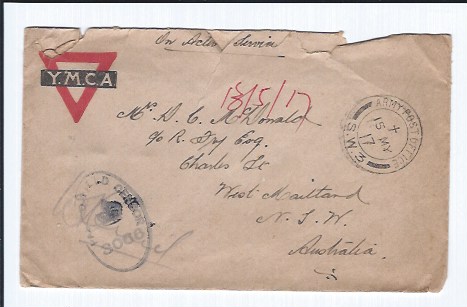 On Active Service
Y.M.C.A
18/5/17
Mr. D. C. McDonald
c/o R. Fry Esq.
Charles St
West Maitland
N. S. W.
Australia.
ARMY POST OFFICE
X
15 MY
17
S.W.3
3086